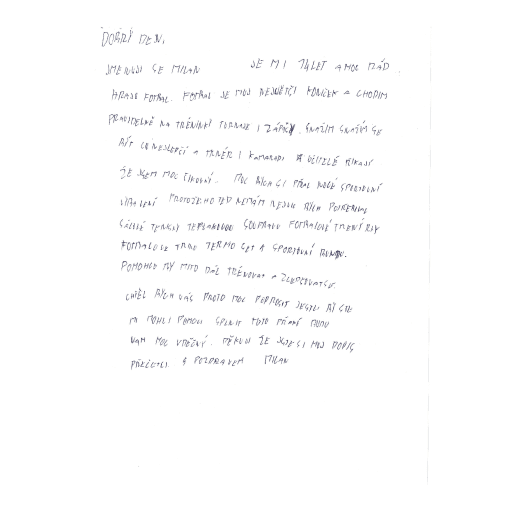 DOBRÝ DEN,
JMENUJI SE MILAN JE MI 14 LET A MOC RÁD
HRAJU FOTBAL. FOTBAL JE MŮJ NEJVĚTŠÍ KONÍČEK A CHODIM
PRAVIDELNĚ NA TRÉNINKY TURNAJE I ZÁPASY. SNAŽIM SNAŽIM SE
BÝT CO NEJLEPČÍ A TRENÉR I KAMARADI A UČITELÉ ŘIKAJÍ
ŽE JSEM MOC ŠIKOVNÝ. MOC BYCH SI PŘÁL NOVÉ SPORTOVNÍ
VYBAVENÍ PROTOŽE HO TEĎ NEMÁM NEJVIC BYCH POTŘEBOVAL
TENISKY TEPLAKOVOU SOUPRAVU FOTBALOVÉ TRENÝRKY
FOTBALOVE TERMO SET A SPORTOVNÍ BUNDU.
POMOHLO BY MI TO DÁL TRÉNOVAT A ZLEPŠOVAT SE.
CHTĚL BYCH VÁS PROTO MOC POPROSIT JESTLI BY STE
MI MOHLI POMOCI SPLNIT TOTO PŘÁNÍ BUDU
VAM MOC VDĚČNÝ. DĚKUJI ŽE JSTE SI MŮJ DOPIS
PŘEČETLI. S POZDRAVEM MILAN